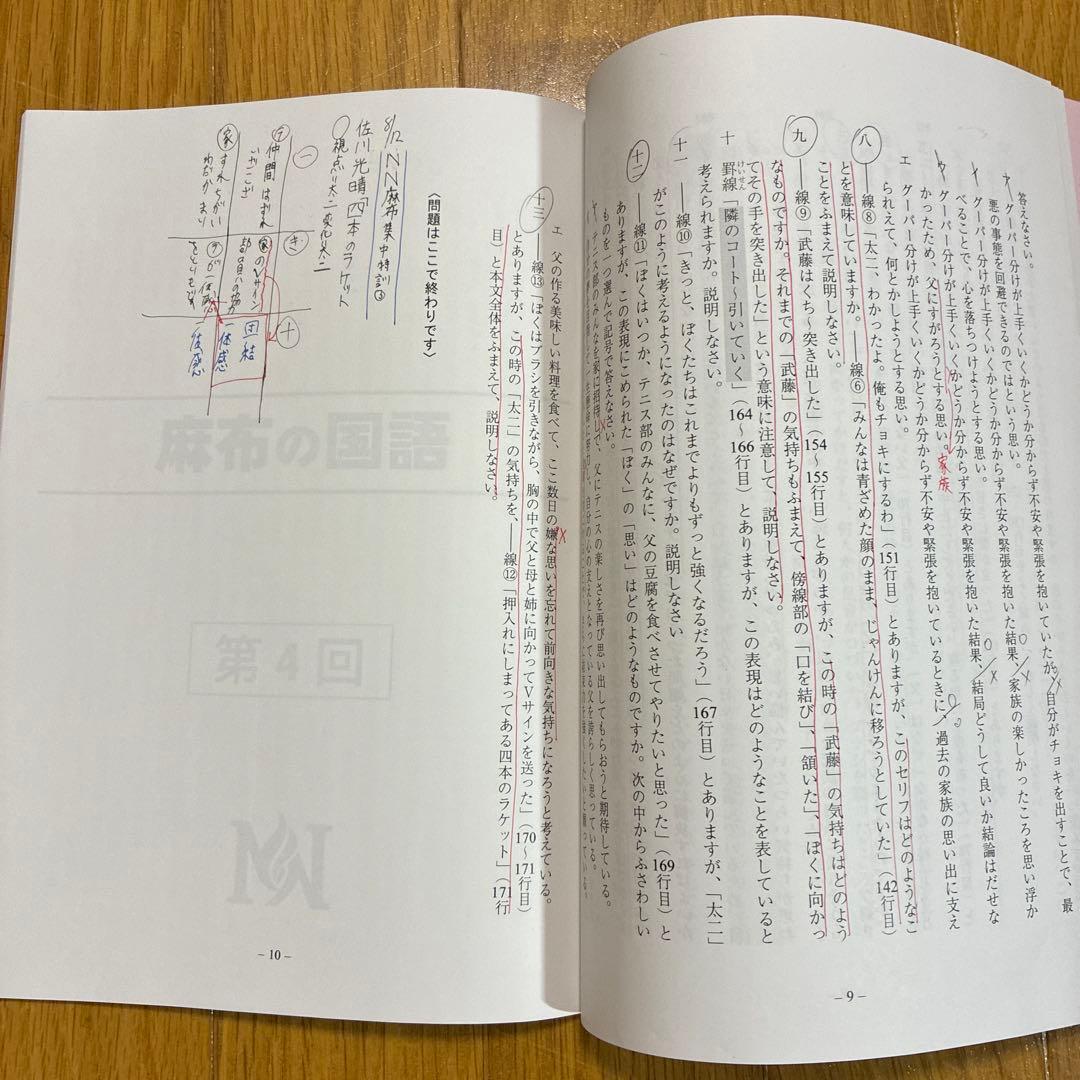 答えなさい。
ア グーパー分けが上手くいくかどうか分からず不安や緊張を抱いていたが、自分がチョキを出すことで、最
悪の事態を回避できるのではという思い。
イ グーパー分けが上手くいくかどうか分からず不安や緊張を抱いた結果、家族の楽しかったころを思い浮か
べることで、心を落ちつけようとする思い。
ウ グーパー分けが上手くいくかどうか分からず不安や緊張を抱いた結果、結局どうして良いか結論はだせな
かったため、父にすがろうとする思い。
家族
エ グーパー分けが上手くいくかどうか分からず不安や緊張を抱いているときに、過去の家族の思い出に支え
られえて、何とかしようとする思い。
八 ――線⑧「太二、わかったよ。俺もチョキにするわ」(151行目)とありますが、このセリフはどのようなこ
とを意味していますか。――線⑥「みんなは青ざめた顔のまま、じゃんけんに移ろうとしていた」(142行目)
ことをふまえて説明しなさい。
九 ――線⑨「武藤はくち～突き出した」(154～155行目)とありますが、この時の「武藤」の気持ちはどのよう
なものですか。それまでの「武藤」の気持ちもふまえて、傍線部の「口を結び」、「頷いた」、「ぼくに向かっ
てその手を突き出した」という意味に注意して、説明しなさい。
十 罫線「隣のコート～引いていく」(164～166行目)とありますが、この表現はどのようなことを表していると
けいせん
考えられますか。説明しなさい。
十一 ――線⑩「きっと、ぼくたちはこれまでよりもずっと強くなるだろう」(167行目)とありますが、「太二」
がこのように考えるようになったのはなぜですか。説明しなさい
十二 ――線⑪「ぼくはいつか、テニス部のみんなに、父の豆腐を食べさせてやりたいと思った」(169行目)と
ありますが、この表現にこめられた「ぼく」の「思い」はどのようなものですか。次の中からふさわしい
ものを一つ選んで記号で答えなさい。
ア テニス部のみんなを家に招待して、父にテニスの楽しさを再び思い出してもらおうと期待している。
自分の心の支えとなっている父を誇らしく思っている。
エ 父の作る美味しい料理を食べて、ここ数日の嫌な思いを忘れて前向きな気持ちになろうと考えている。
十三 ――線⑬「ぼくはブラシを引きながら、胸の中で父と母と姉に向かってVサインを送った」(170～171行目)
とありますが、この時の「太二」の気持ちを、――線⑫「押入れにしまってある四本のラケット」(171行
目)と本文全体をふまえて、説明しなさい。
〈問題はここで終わりです〉
8/12 NN麻布集中特訓③
佐川光晴「四本のラケット」
視点 太二 変化 太二
一
き
十
仲間はずれ
家
すれちがい
Vサイン
団結
一体感
－9－
－10－
麻布の国語